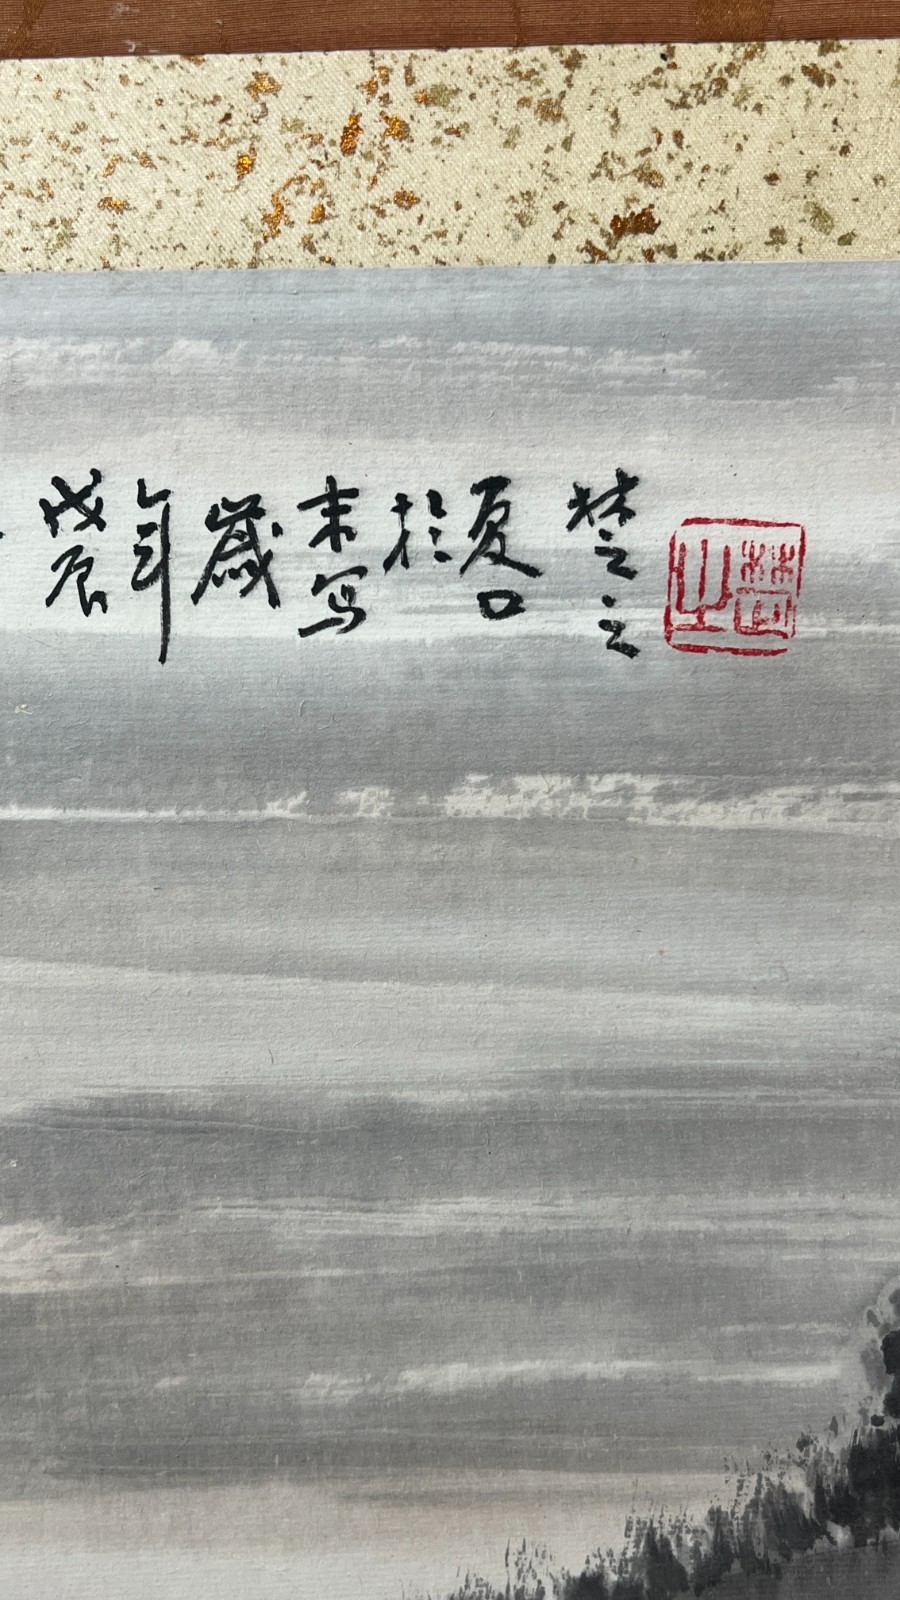 戊辰年歲末写於夏口楚之
楚之